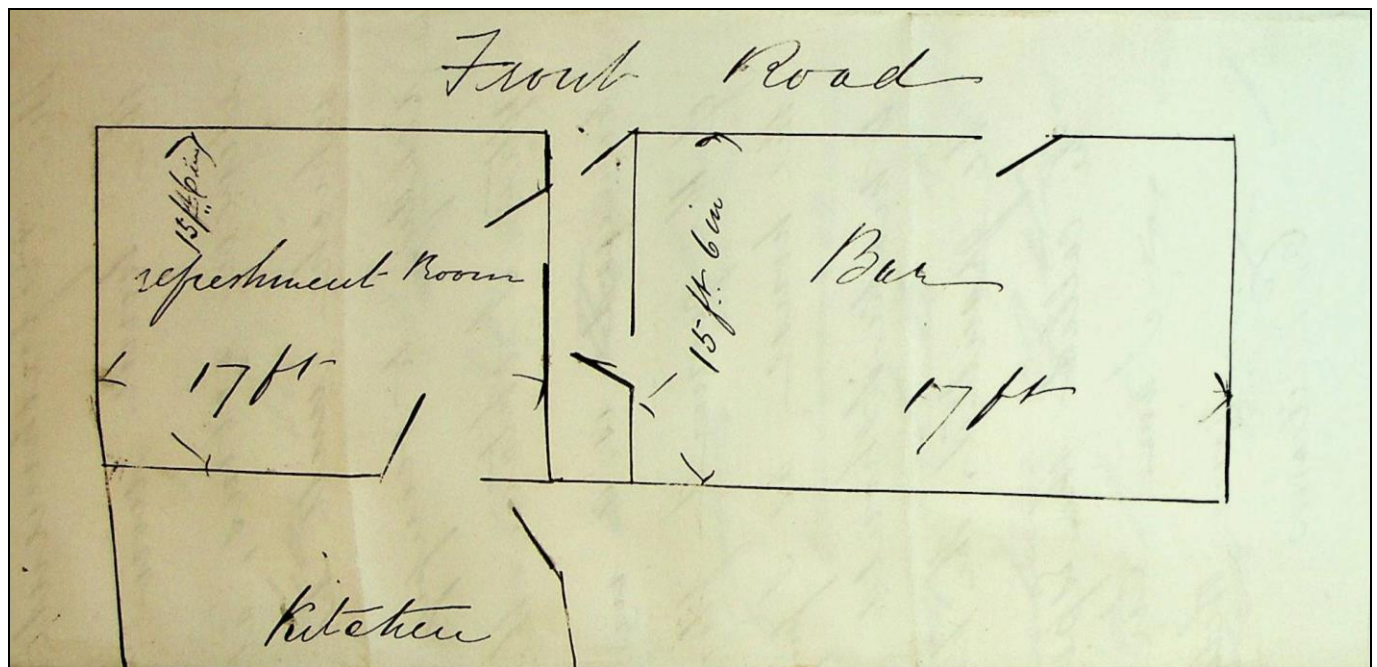 Front Road
15 ft 6 in
refreshment Room
17 ft
15 ft 6 in
Bar
17 ft
Kitchen